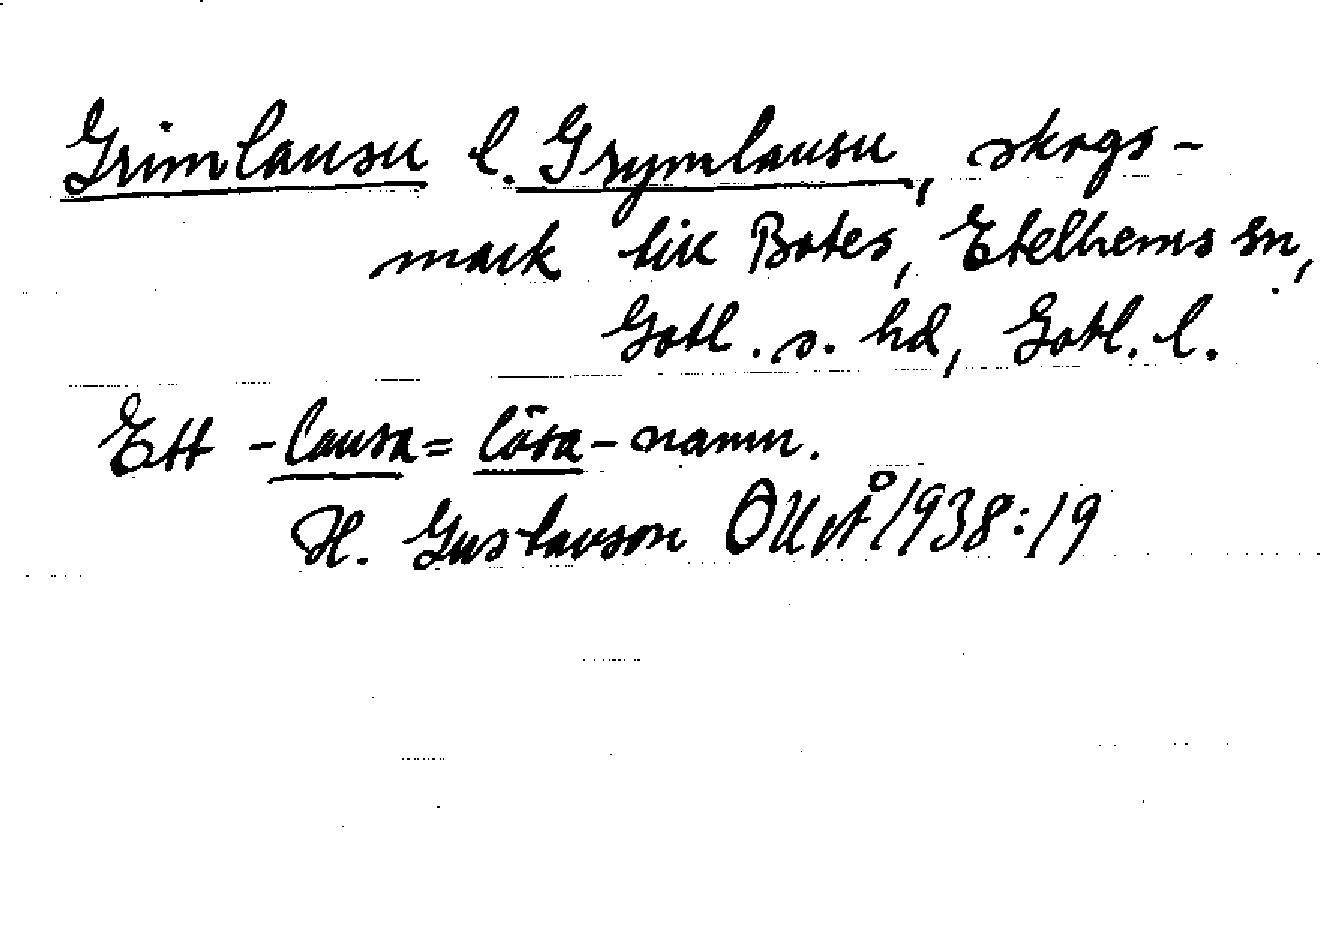 Grimlausu l. Grymlausu, skogs-
mark till Botes, Etelhems sn,
Gotl. s. hd, Gotl. l.
Ett -lausa = lösa-namn.
H. Gustavson OUÅ 1938:19